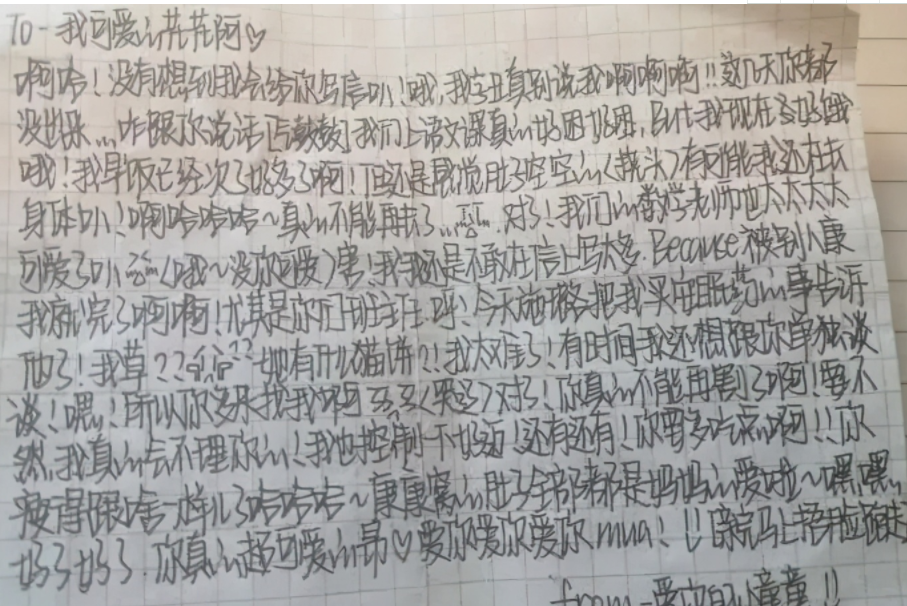 To-我可爱的芃芃阿♡
啊哈!没有想到我会给你写信叭!哦,我字丑真别说我啊啊啊!!这几天你都
没出来...咋跟你说话 我们上语文课真的好困好困,But我现在好饿
哦!我早饭已经次了好多了啊!但还是感觉肚子空空的(挠头)有可能我还在长
身体叭!啊哈哈哈~真的不能再长了..对了!我们的数学老师也太太太太
可爱了叭(哦~没你可爱)害!我我还是不敢在信上写太多.Because被别人康
我就完了啊啊!尤其是你们班主任 呼!今天她把我买安眠药的事告诉
他了!我草??她有什么猫饼??我太难了!有时间我还想跟你单独谈
谈!嘿!所以你多来找我啊(哭泣)对了!你真的不能再割了啊!要不
然,我真的会不理你的!我也控制一下好源!还有还有!你要多吃点啊!!你
瘦得跟啥一样儿了哈哈哈~康康窝的肚子全部都是妈妈的爱啦~嘿,嘿,
好了好了.你真的超可爱的昂♡爱你爱你爱你mua!!!
from-爱你的童童!!